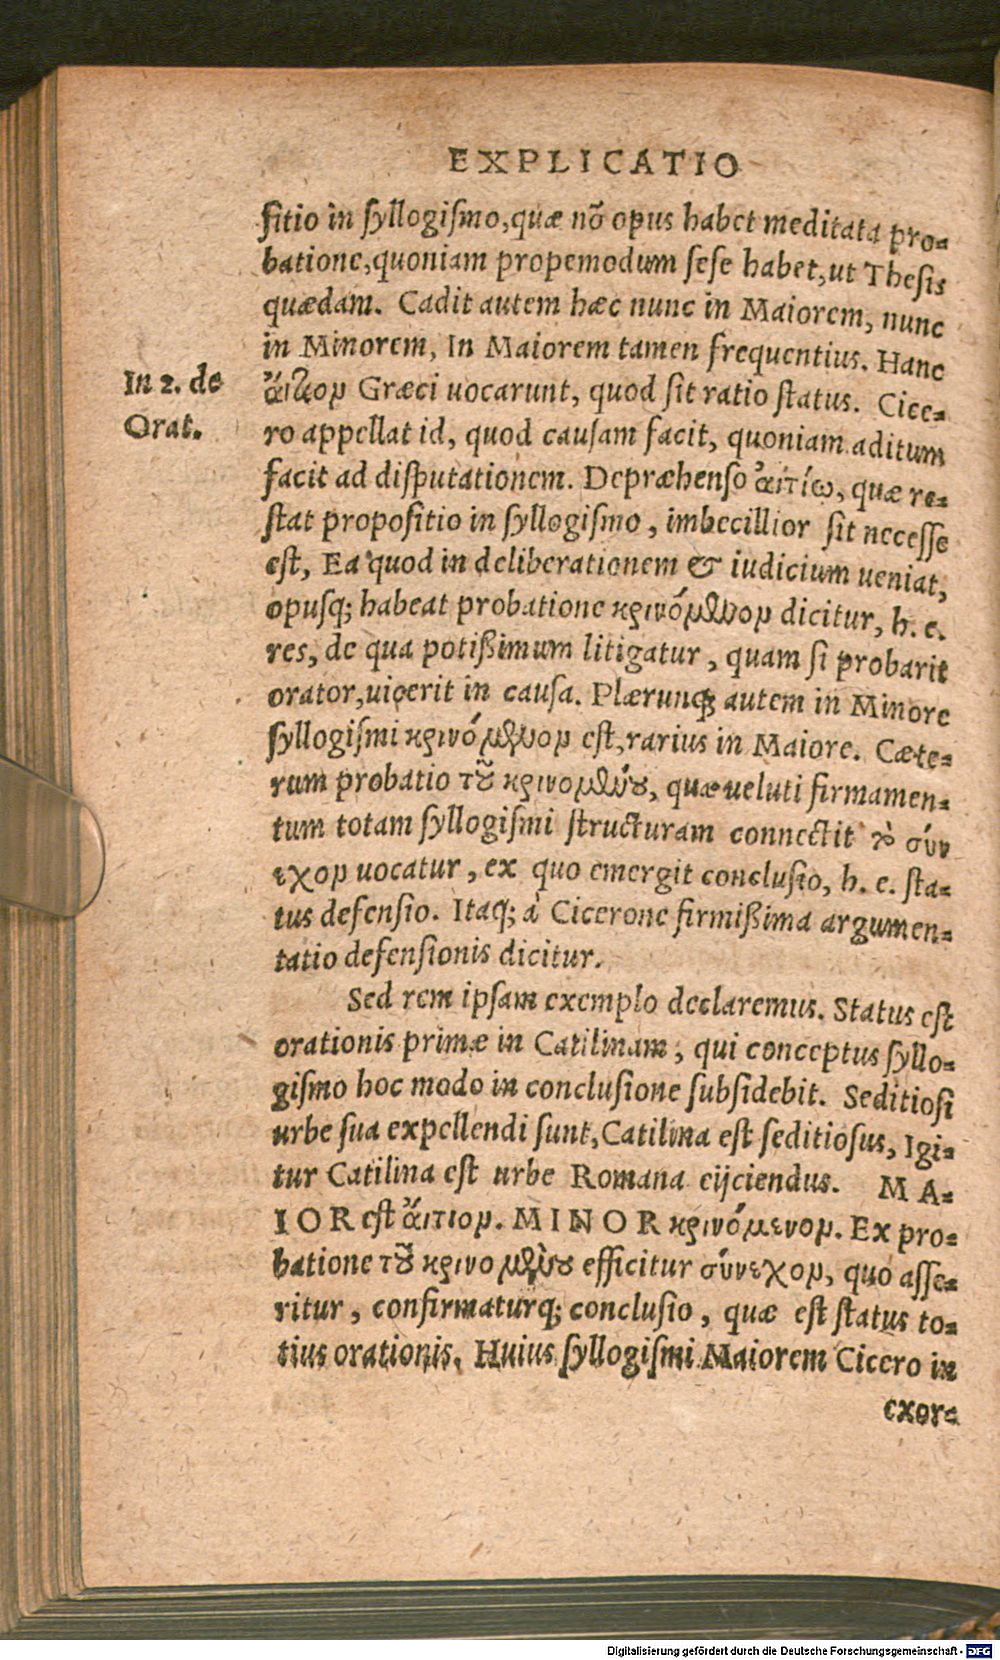 EXPLICATIO
sitio in syllogismo, quæ nõ opus habet meditata pro-
batione, quoniam propemodum sese habet, ut Thesis
quædam. Cadit autem hæc nunc in Maiorem, nunc
in Minorem, In Maiorem tamen frequentius. Hanc
In 2. de
Orat.
ἄιτιον Græci uocarunt, quod sit ratio status. Cice-
ro appellat id, quod causam facit, quoniam aditum
facit ad disputationem. Depræhenso ἀιτίω, quæ re-
stat propositio in syllogismo, imbecillior sit necesse
est, Ea quod in deliberationem & iudicium ueniat,
opusq; habeat probatione κρινόμενον dicitur, h. e.
res, de qua potißimum litigatur, quam si probarit
orator, uicerit in causa. Plærunq; autem in Minore
syllogismi κρινόμενον est, rarius in Maiore. Cæte-
rum probatio τοῦ κρινομένου, quæ ueluti firmamen-
tum totam syllogismi structuram connectit τὸ σύν
εχον uocatur, ex quo emergit conclusio, h. e. sta-
tus defensio. Itaq; à Cicerone firmißima argumen-
tatio defensionis dicitur.
Sed rem ipsam exemplo declaremus. Status est
orationis primæ in Catilinam, qui conceptus syllo-
gismo hoc modo in conclusione subsidebit. Seditiosi
urbe sua expellendi sunt, Catilina est seditiosus, Igi-
tur Catilina est urbe Romana eijciendus. MA-
IOR est ἄιτιον. MINOR κρινόμενον. Ex pro-
batione τοῦ κρινομένου efficitur σύνεχον, quo asse-
ritur, confirmaturq; conclusio, quæ est status to-
tius orationis. Huius syllogismi Maiorem Cicero in
exor-
Digitalisierung gefördert durch die Deutsche Forschungsgemeinschaft - DFG